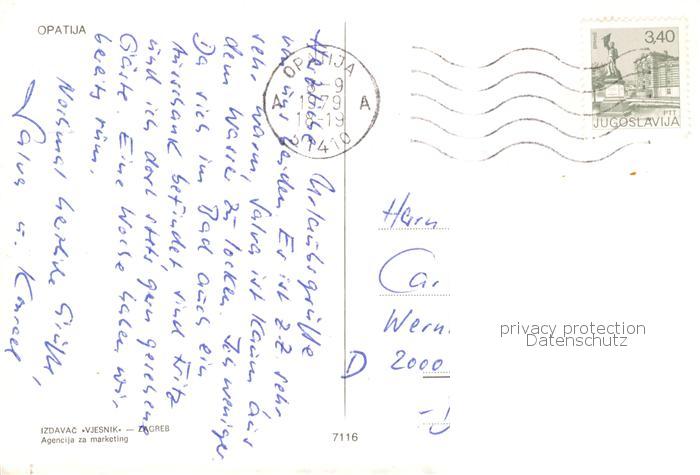 OPATIJA
Herzliche Urlaubsgrüße
von uns beiden. Es ist z.Z. sehr,
sehr warm, Salva ist kaum aus
dem Wasser zu locken. Ich weniger.
Da sich im Bad auch ein
Ausschank befindet sind Fritz
und ich dort stets gern gesehene
Gäste. Eine Woche haben wir
bereits rum.
Nochmal herzliche Grüße,
u. Konrad
OPATIJA
9
1979
A A
18-19
51410
3,40
PTT
JUGOSLAVIJA
Herrn
Car
Wern
D 2000
privacy protection
Datenschutz
IZDAVAČ »VJESNIK« — ZAGREB
Agencija za marketing
7116